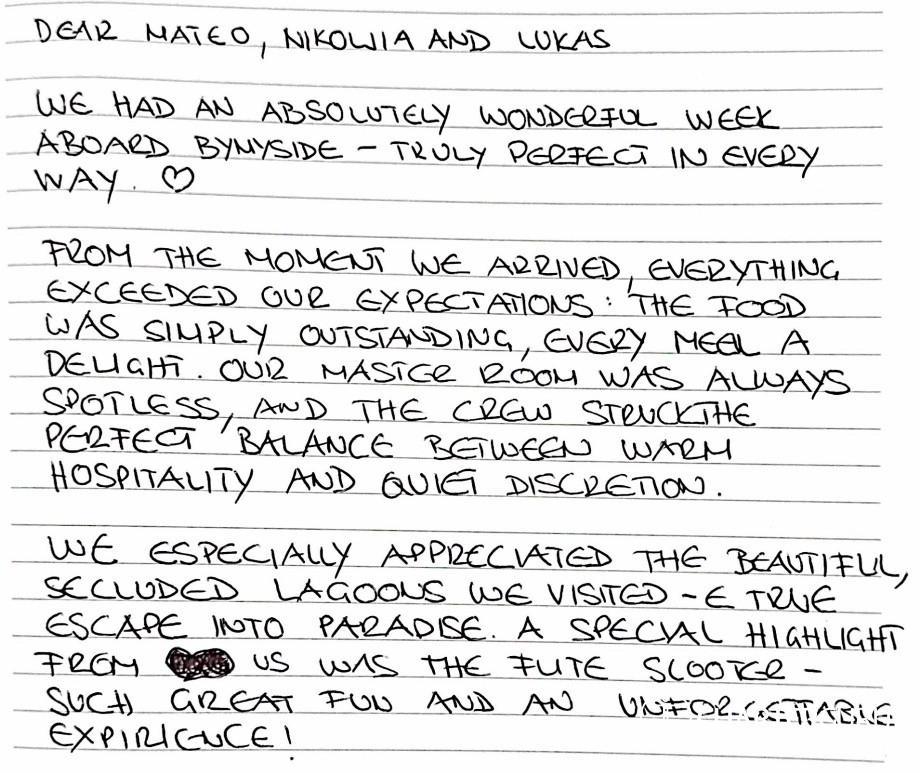 DEAR MATEO, NIKOLINA AND LUKAS
WE HAD AN ABSOLUTELY WONDERFUL WEEK
ABOARD BYMYSIDE – TRULY PERFECT IN EVERY
WAY. ♡
FROM THE MOMENT WE ARRIVED, EVERYTHING
EXCEEDED OUR EXPECTATIONS: THE FOOD
WAS SIMPLY OUTSTANDING, EVERY MEEL A
DELIGHT. OUR MASTER ROOM WAS ALWAYS
SPOTLESS, AND THE CREW STRUCKTHE
PERFECT BALANCE BETWEEN WARM
HOSPITALITY AND QUIET DISCRETION.
WE ESPECIALLY APPRECIATED THE BEAUTIFUL,
SECLUDED LAGOONS WE VISITED – E TRUE
ESCAPE INTO PARADISE. A SPECIAL HIGHLIGHT
FROM US WAS THE FLITE SCOOTER –
SUCH GREAT FUN AND AN UNFORGETTABLE
EXPIRIENCE!